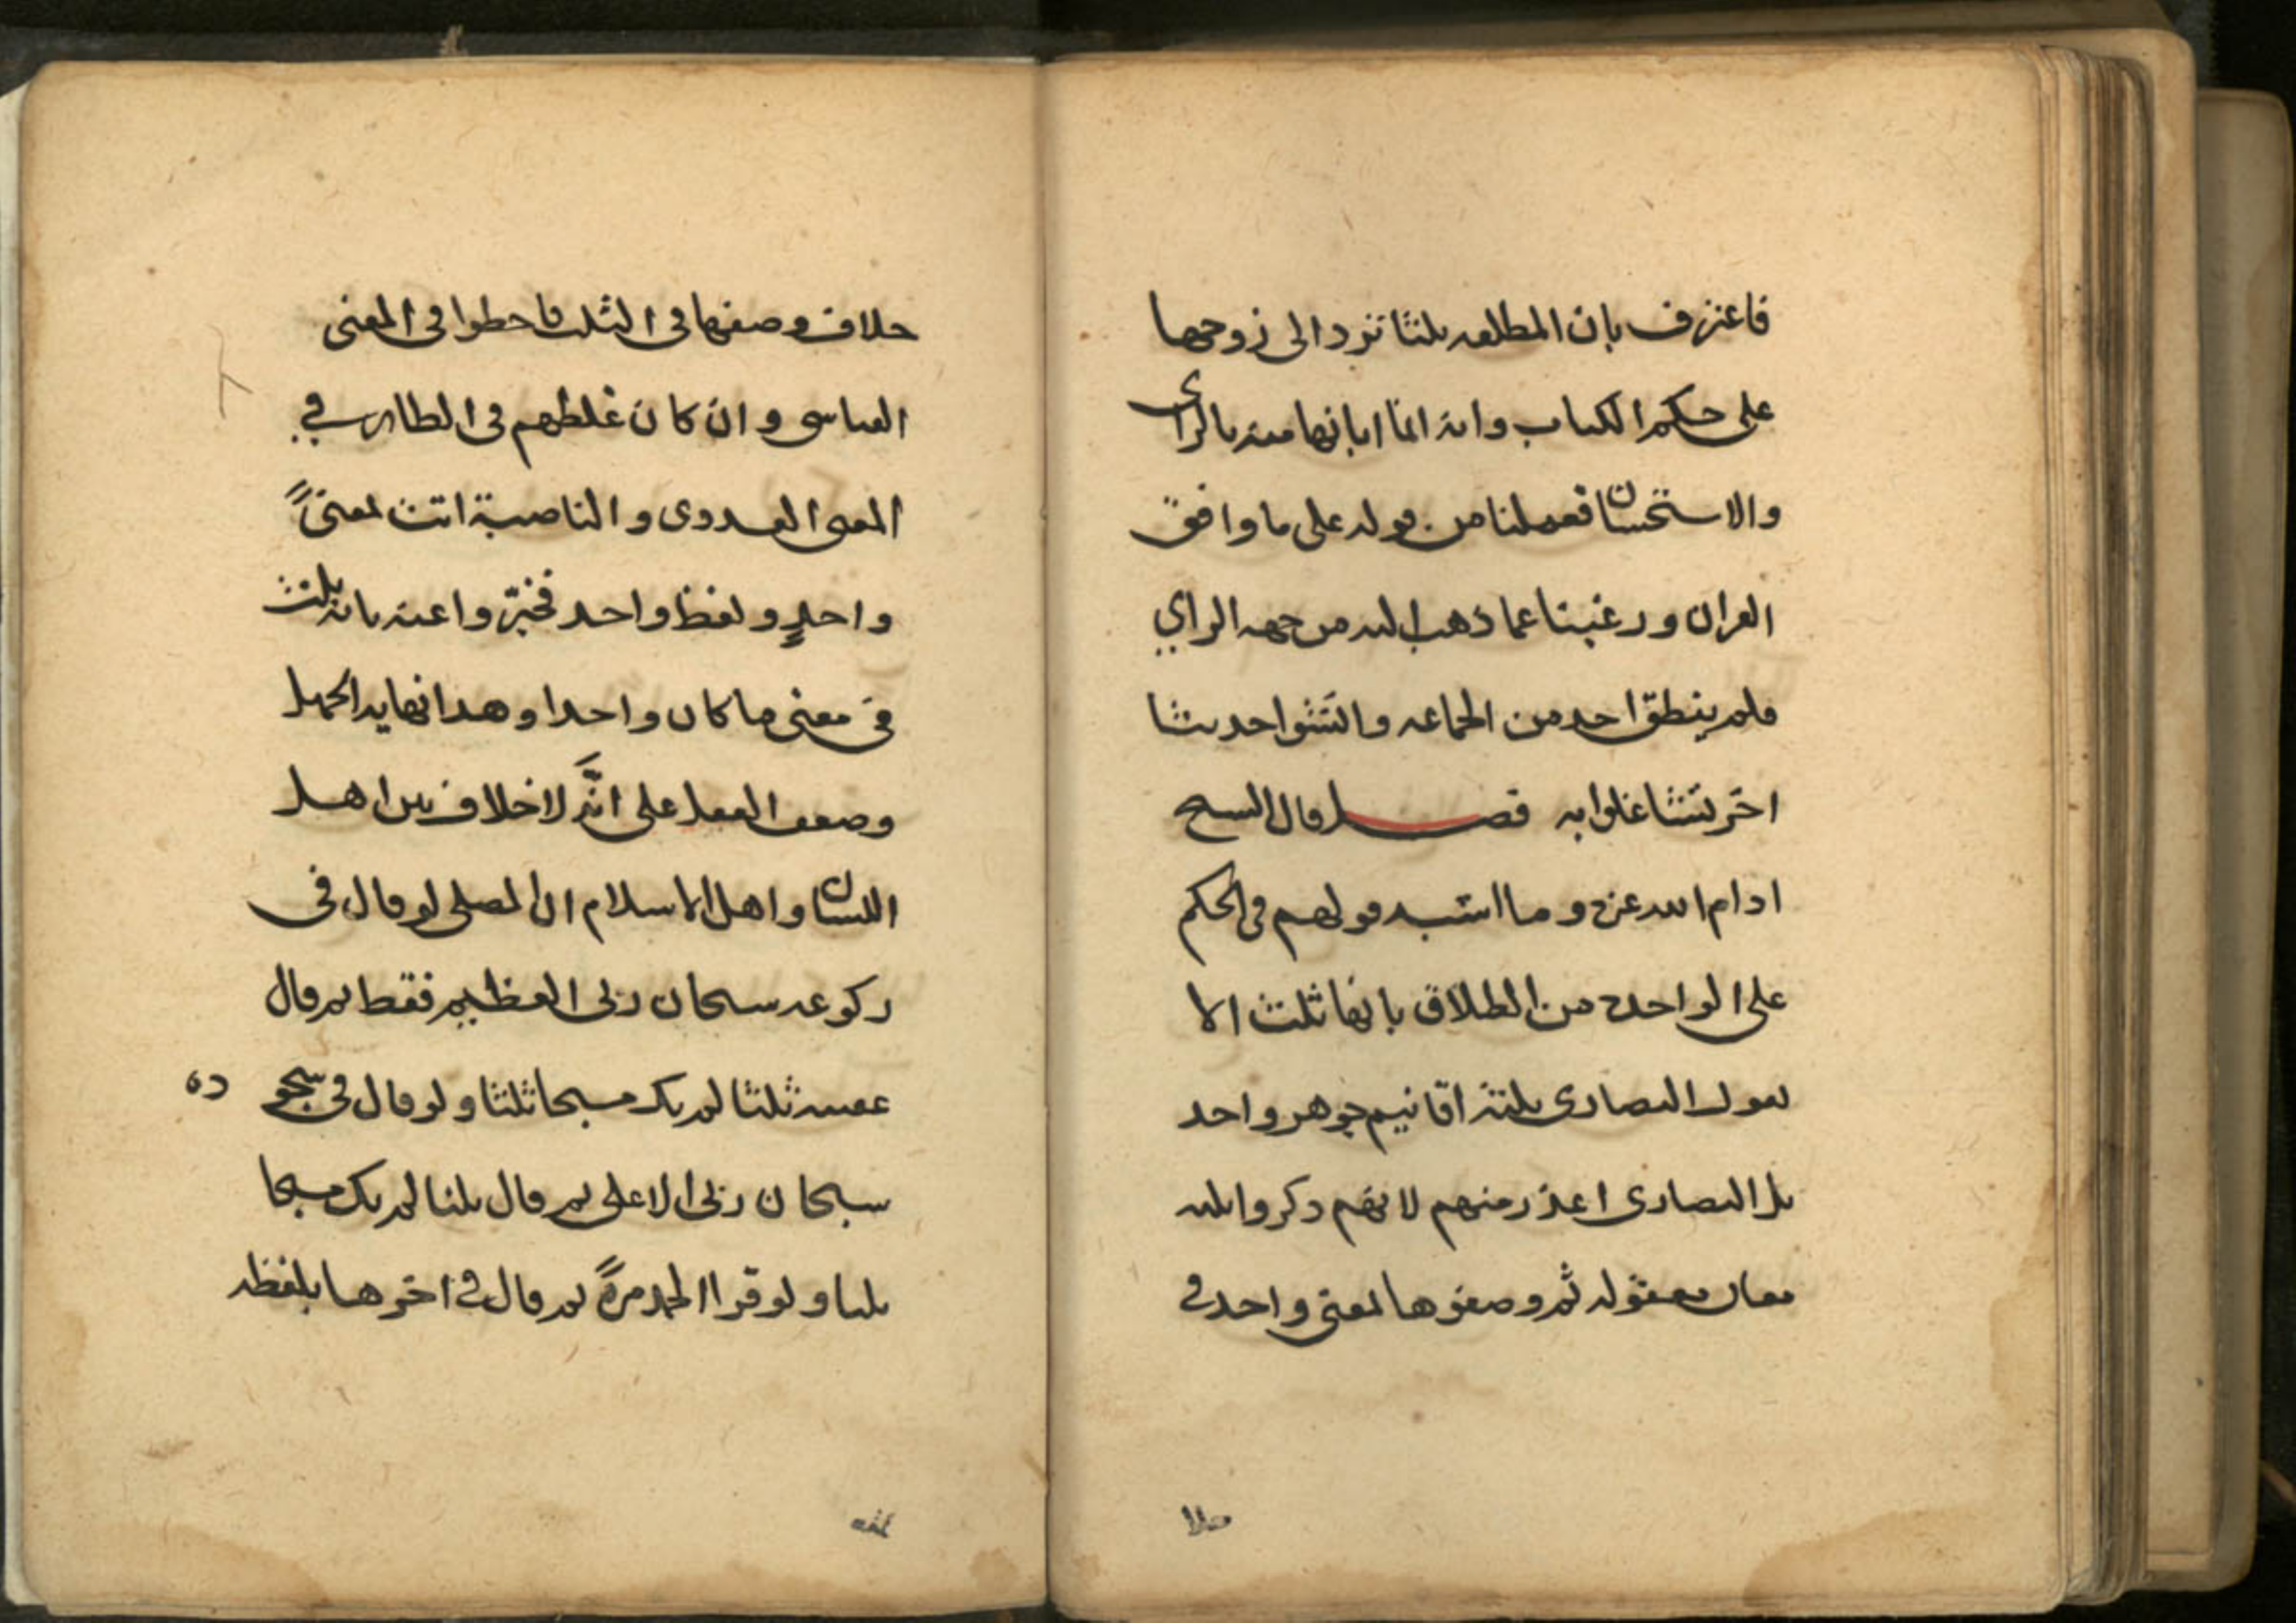 فاعترف بان المطلقه ثلثا ترد الى زوجها
على حكم الكتاب وانه انما ابانها منه بالراى
والاستحسان فعملنا من قوله على ما وافق
القران ورغبنا عما ذهب اليه من جهه الراي
فلم ينطق احد من الجماعه وانشئوا حديثا
اخر تشاغلوا به فصل قال الشيخ
ادام الله عزه وما اشبه قولهم فى الحكم
على الواحده من الطلاق بانها ثلث الا
بقول النصارى ثلثة اقانيم جوهر واحد
بل النصارى اعذر منهم لانهم ذكروا ثلثه
معان معقوله ثم وصفوها بمعنى واحد فى
خلا
خلاف وصفها فى الثلث فاخطوا فى المعنى
القياسى وان كان غلطهم فى الظاهر في
المعنى العددى والناصبة اتت بمعنىً
واحدٍ ولفظ واحد فخبرّوا عنه بانه ثلث
فى معنى ما كان واحدا وهذا نهاية الجهل
وضعف العقل على انَّه لا خلاف بين اهل
اللسان واهل الاسلام ان المصلى لو قال فى
ركوعه سبحان ربى العظيم فقط ثم قال
عقيبه ثلثا لم يكن مسبحا ثلثا ولو قال فى سجوده
سبحان ربى الاعلى ثم قال ثلثا لم يكن مسبحا
ثلثا ولو قرا الحمد مرةً ثم قال في اخرها بلفظه